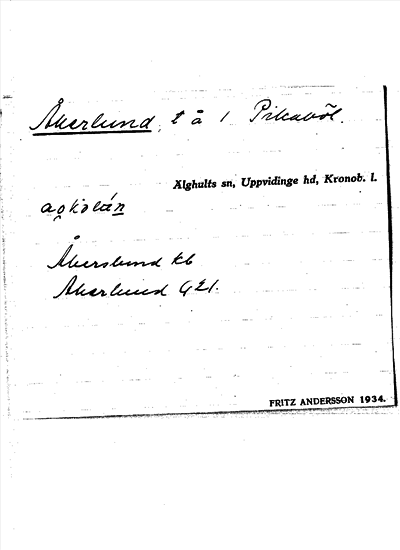 Åkerlund, t å 1 Pikaböl.
Älghults sn, Uppvidinge hd, Kronob. l.
Åkerslund kb
Åkerlund
FRITZ ANDERSSON 1934.